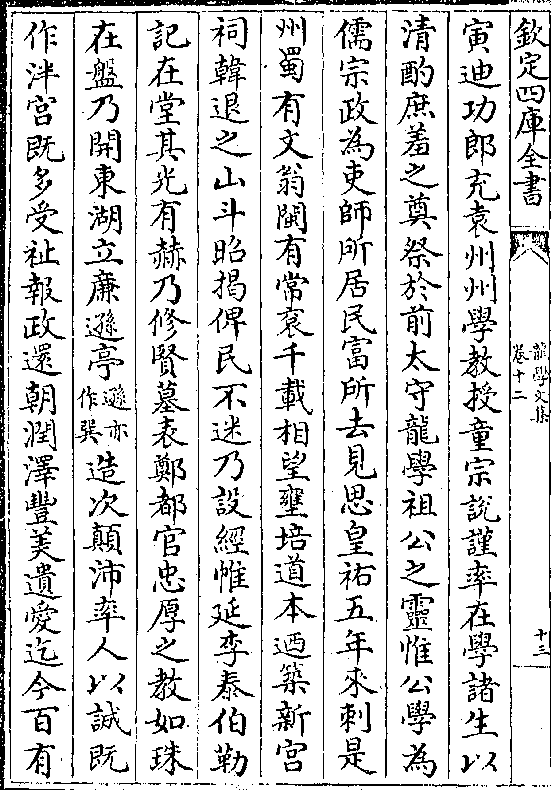 欽定四庫全書
龍學文集
卷十二
十三
寅迪功郎充袁州州學教授童宗說謹率在學諸生以
清酌庶羞之奠祭於前太守龍學祖公之靈惟公學為
儒宗政為吏師所居民富所去見思皇祐五年來刺是
州蜀有文翁閩有常衮千載相望壅培道本迺築新宫
祠韓退之山斗昭揭俾民不迷乃設經帷延李泰伯勒
記在堂其光有赫乃修賢墓表鄭都官忠厚之教如珠
在盤乃開東湖立廉遜亭遜亦作巽造次顛沛率人以誠既
作泮宫既多受祉報政還朝潤澤豐美遺愛迄今百有